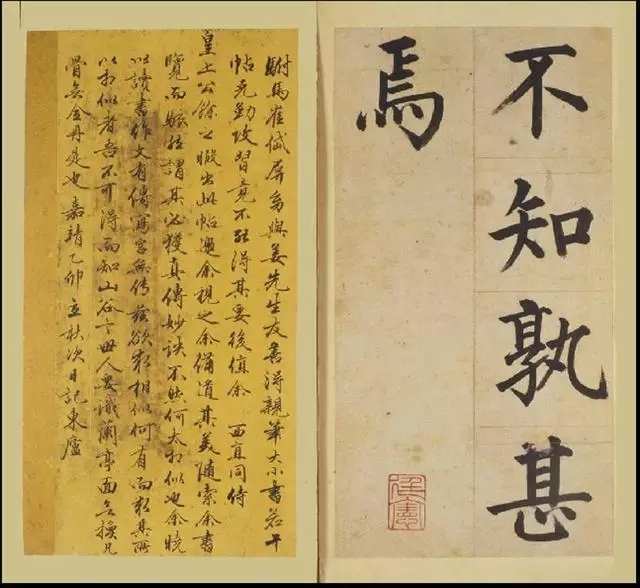 不知孰甚
焉
駙馬崔岱屏翁與姜先生友善得親筆大小書若干
帖先勤攻習竟不能得其要後值余 西直同侍
皇上公餘之暇出此帖過余視之余備道其美隨索余書
覽而謂其必獲真傳妙訣不然何太相似也余曉
以讀書作文有傳寫字無傳茲欲求相似何有而求其所
以相似者吾不可得而知山谷云世人要識蘭亭面無換凡
骨無金丹是也 嘉靖乙卯立秋次日記東廬